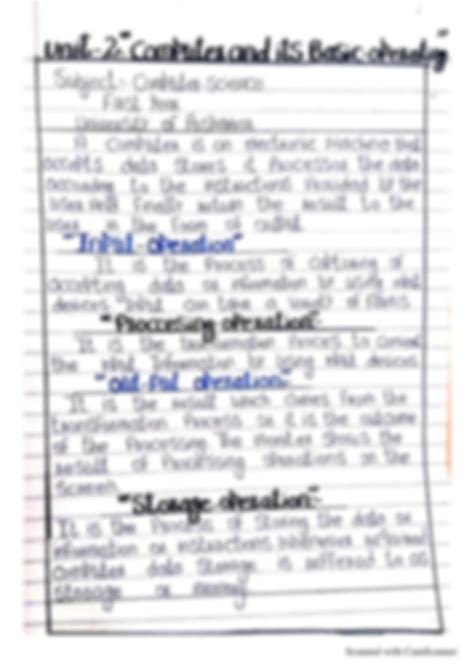 Unit-2 "Computer and its Basic operation"
Subject:- Computer Science
First Year
University of
A Computer is an electronic Machine that
accepts data stores & Processes the data
according to the instructions Provided by the
user and finally return the result to the
user in the form of output
"Input-operation"
It is the Process of capturing or
accepting data or information by using input
devices. Input can take a variety of forms.
"Processing operation:-"
It is the transformation Process to convert
the input Information by using input devices
"Out Put operation:-"
It is the result which comes from the
transformation Process or it is the outcome
of the Processing The monitor shows the
result of Processing operations on the
Screen.
"Storage operation:-"
It is the Process of Storing the data or
information or instructions
Computer data Storage is reffered to as
storage or memory
Scanned with CamScanner